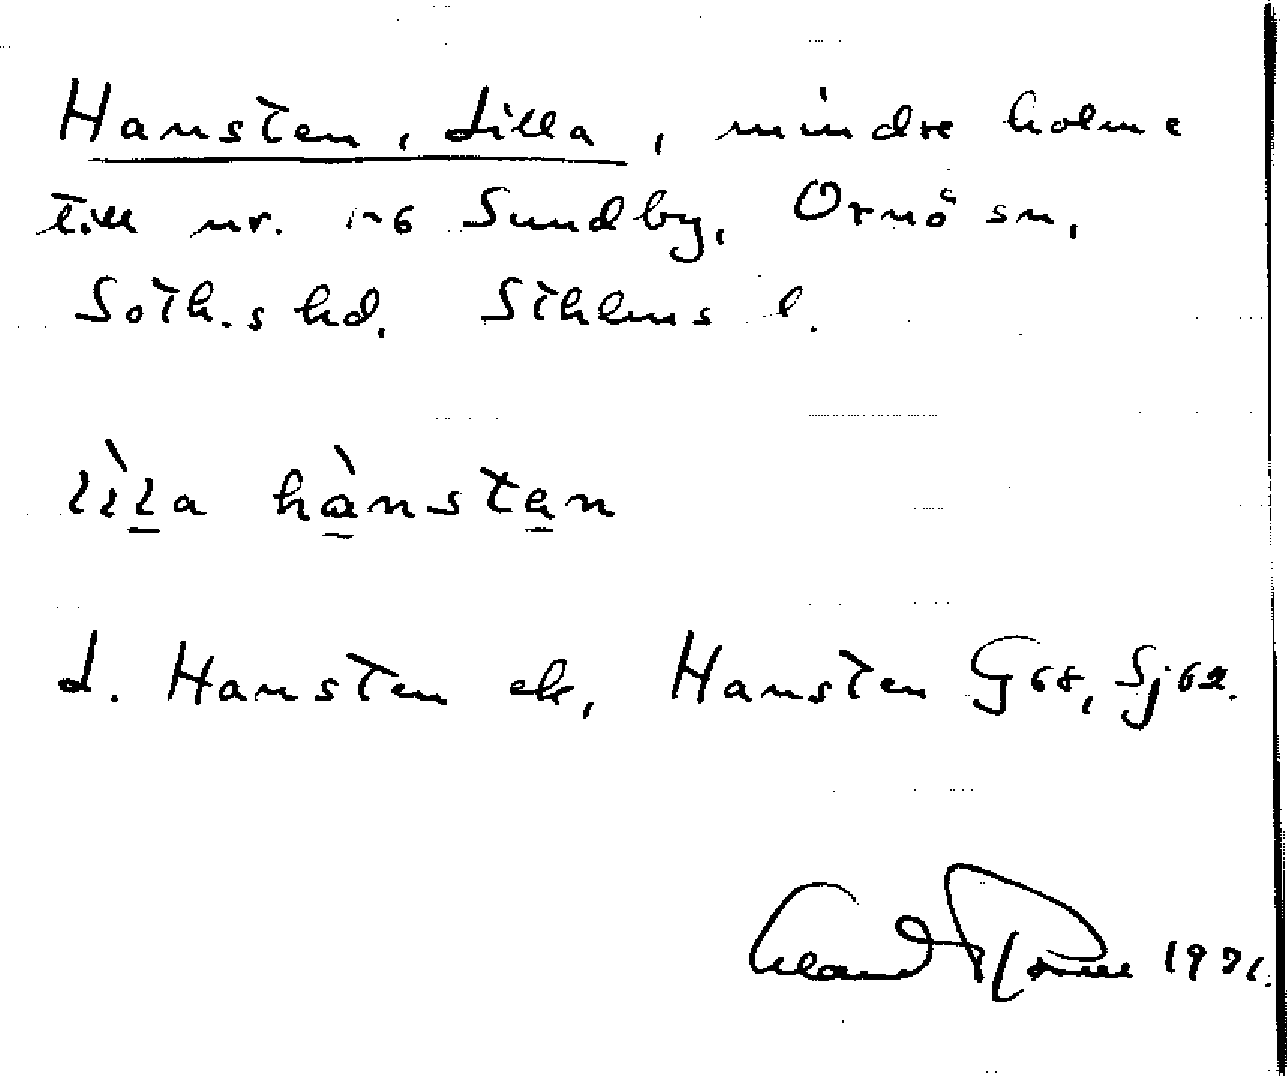 Hansten, Lilla, mindre holme
till nr. 1-6 Sundby, Ornö sn,
Soth.s hd. Sthlms l.
lìla hànstan
L. Hansten ek, Hansten G68, Sj62.
1971.